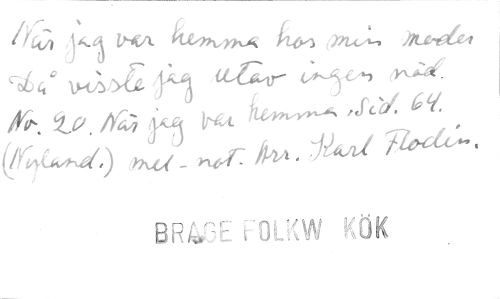 När jag var hemma hos min moder
Då visste jag utav ingen nöd.
No. 20. När jag var hemma. Sid. 64.
(Nyland.) mel-not. Arr. Karl Flodin.
BRAGE FOLKW KÖK